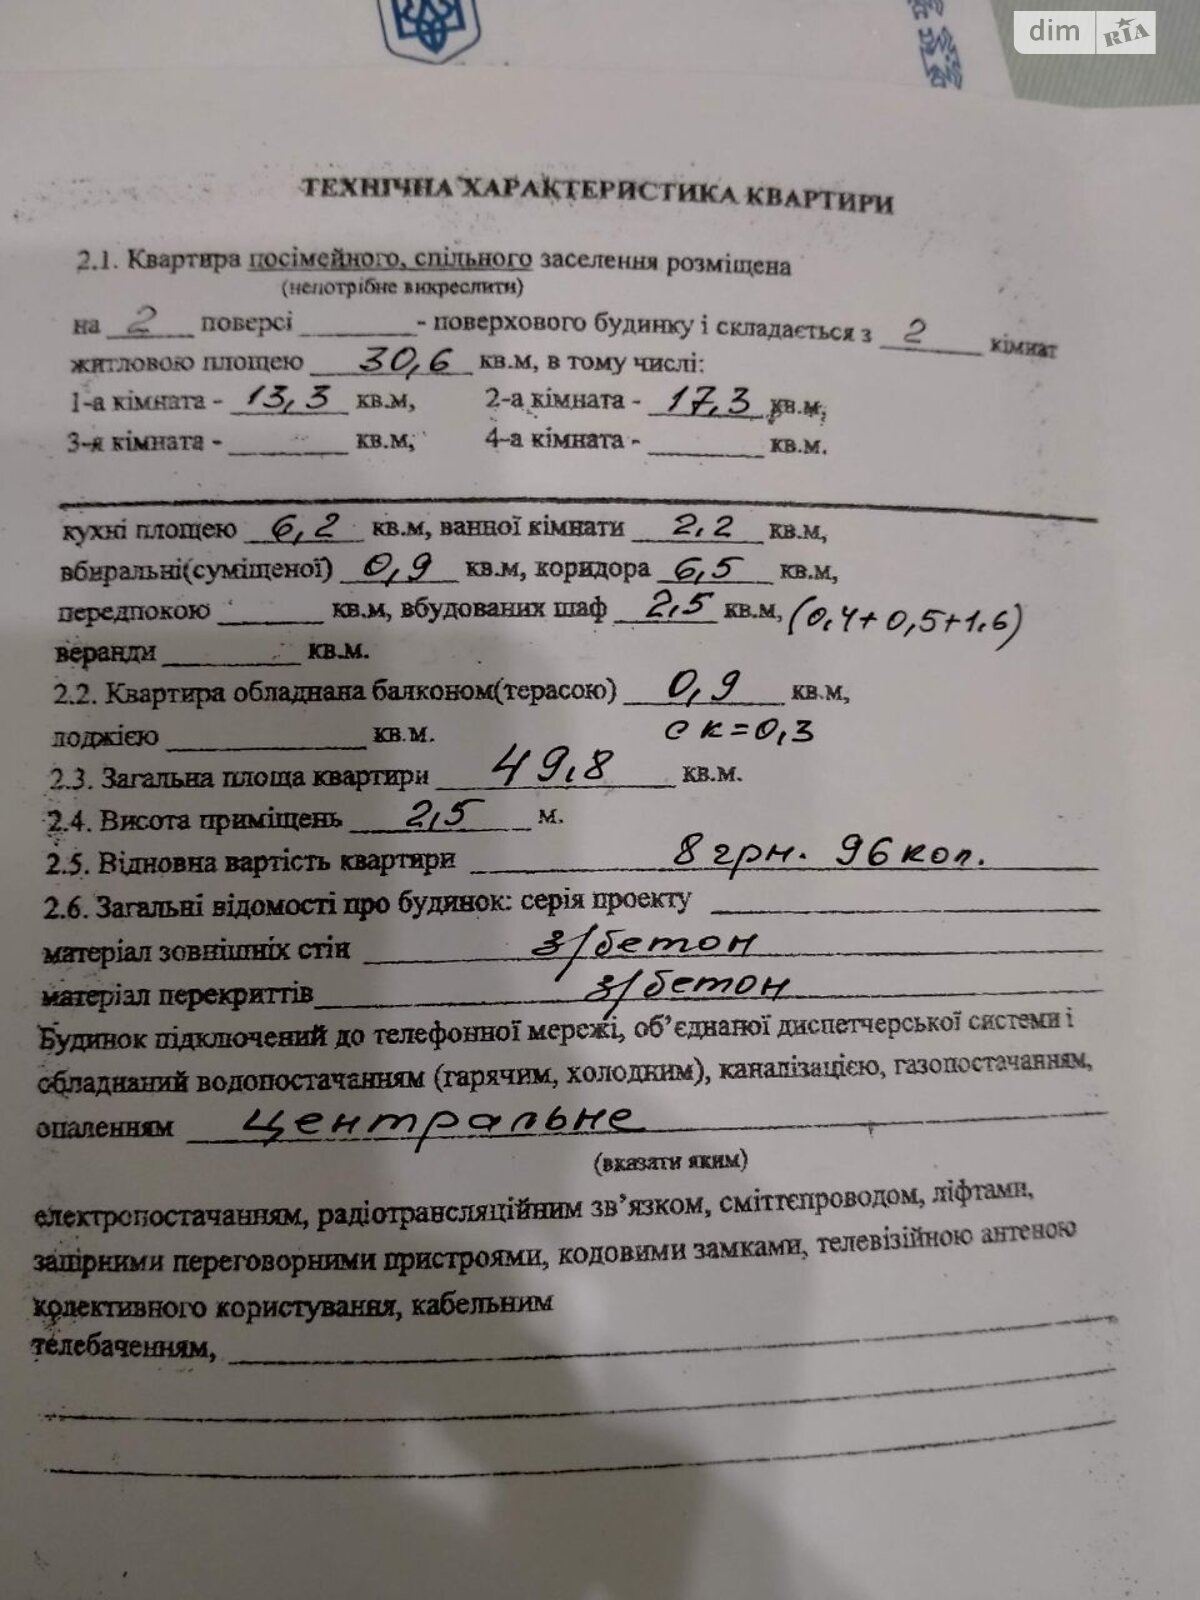 dim RIA
ТЕХНІЧНА ХАРАКТЕРИСТИКА КВАРТИРИ
2.1. Квартира посімейного, спільного заселення розміщена
(непотрібне викреслити)
на 2 поверсі ______ - поверхового будинку і складається з 2 кімнат
житловою площею 30,6 кв.м, в тому числі:
1-а кімната - 13,3 кв.м, 2-а кімната - 17,3 кв.м,
3-я кімната - ______ кв.м, 4-а кімната - ______ кв.м.
кухні площею 6,2 кв.м, ванної кімнати 2,2 кв.м,
вбиральні(суміщеної) 0,9 кв.м, коридора 6,5 кв.м,
передпокою ______ кв.м, вбудованих шаф 2,5 кв.м, (0,4+0,5+1,6)
веранди ______ кв.м.
2.2. Квартира обладнана балконом(терасою) 0,9 кв.м,
лоджією ______ кв.м. с к=0,3
2.3. Загальна площа квартири 49,8 кв.м.
2.4. Висота приміщень 2,5 м.
2.5. Відновна вартість квартири 8 грн. 96 коп.
2.6. Загальні відомості про будинок: серія проекту ______
матеріал зовнішніх стін з/бетон
матеріал перекриттів з/бетон
Будинок підключений до телефонної мережі, об’єднаної диспетчерської системи і
обладнаний водопостачанням (гарячим, холодним), каналізацією, газопостачанням,
опаленням центральне
(вказати яким)
електропостачанням, радіотрансляційним зв’язком, сміттєпроводом, ліфтами,
запірними переговорними пристроями, кодовими замками, телевізійною антеною
колективного користування, кабельним
телебаченням, ______